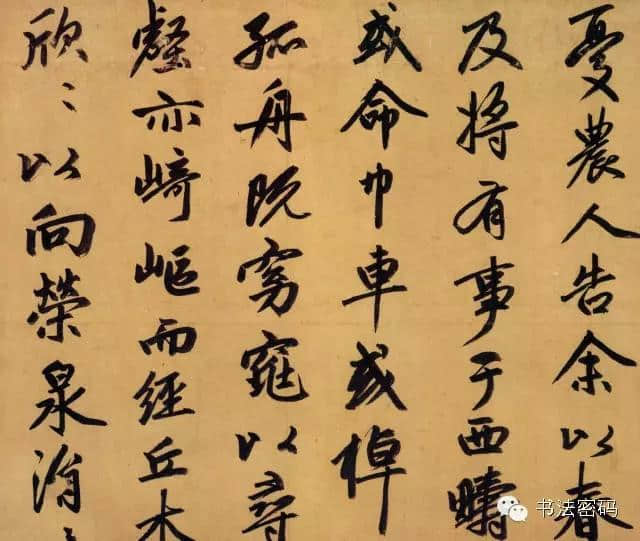 憂農人告余以春
及將有事于西疇
或命巾車或棹
孤舟既窈窕以尋
壑亦崎嶇而經丘木
欣〻以向榮泉涓〻
书法密码